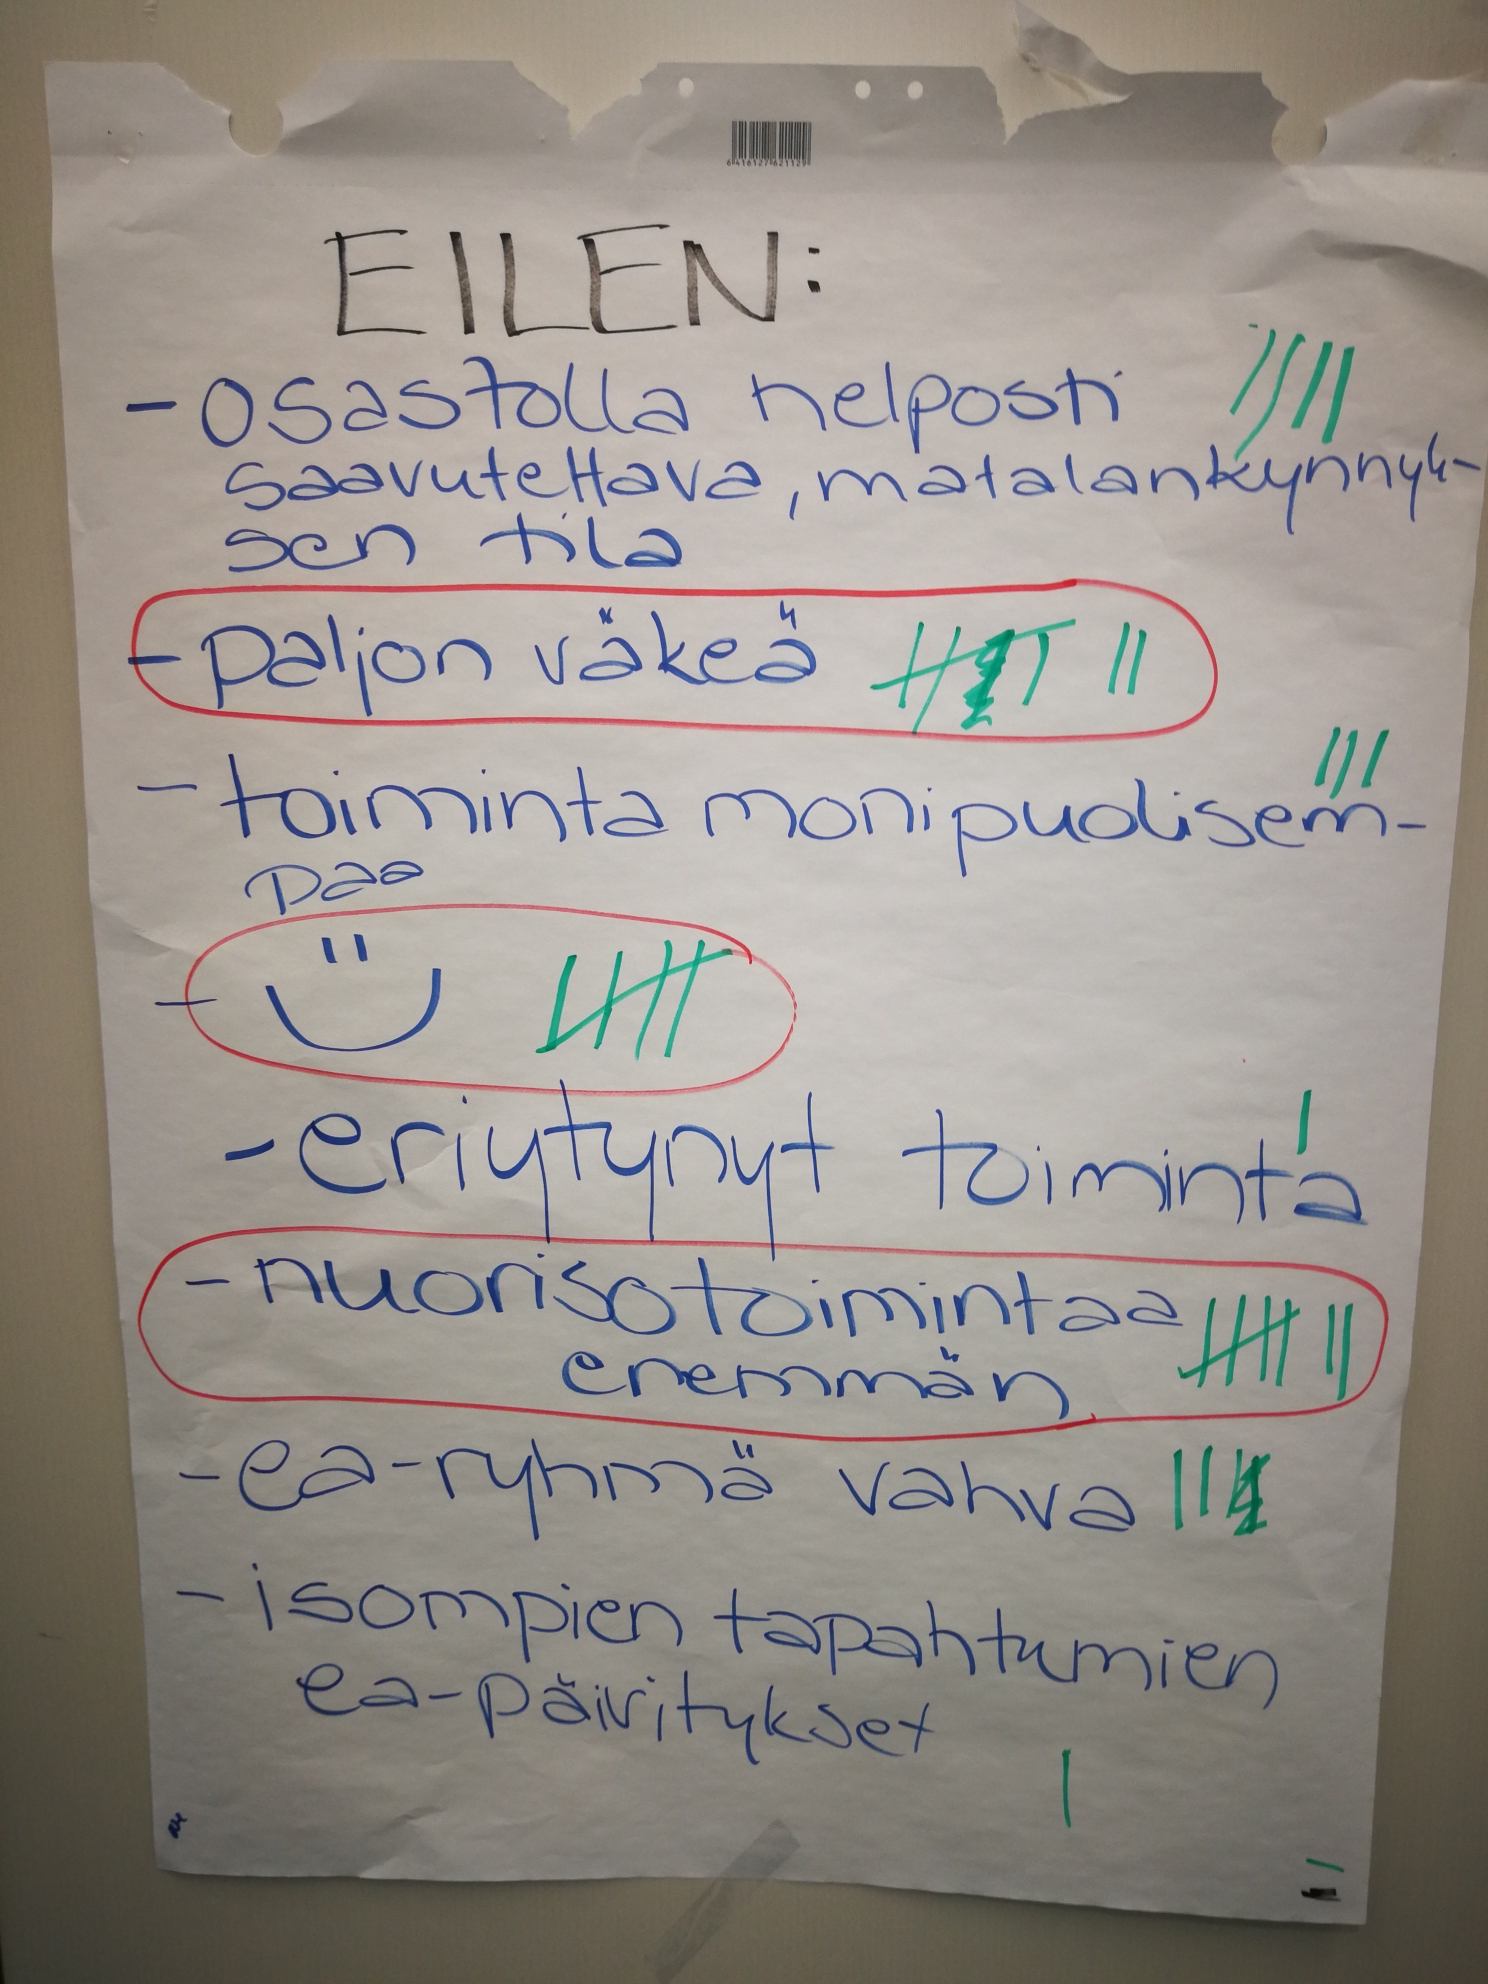 6416127621129
EILEN:
- osastolla helposti
saavutettava, matalankynnyk-
sen tila
- paljon väkeä
- toiminta monipuolisem-
paa
-
- eriytynyt toiminta
- nuorisotoimintaa
enemmän
- ea-ryhmä vahva
- isompien tapahtumien
ea-päivitykset